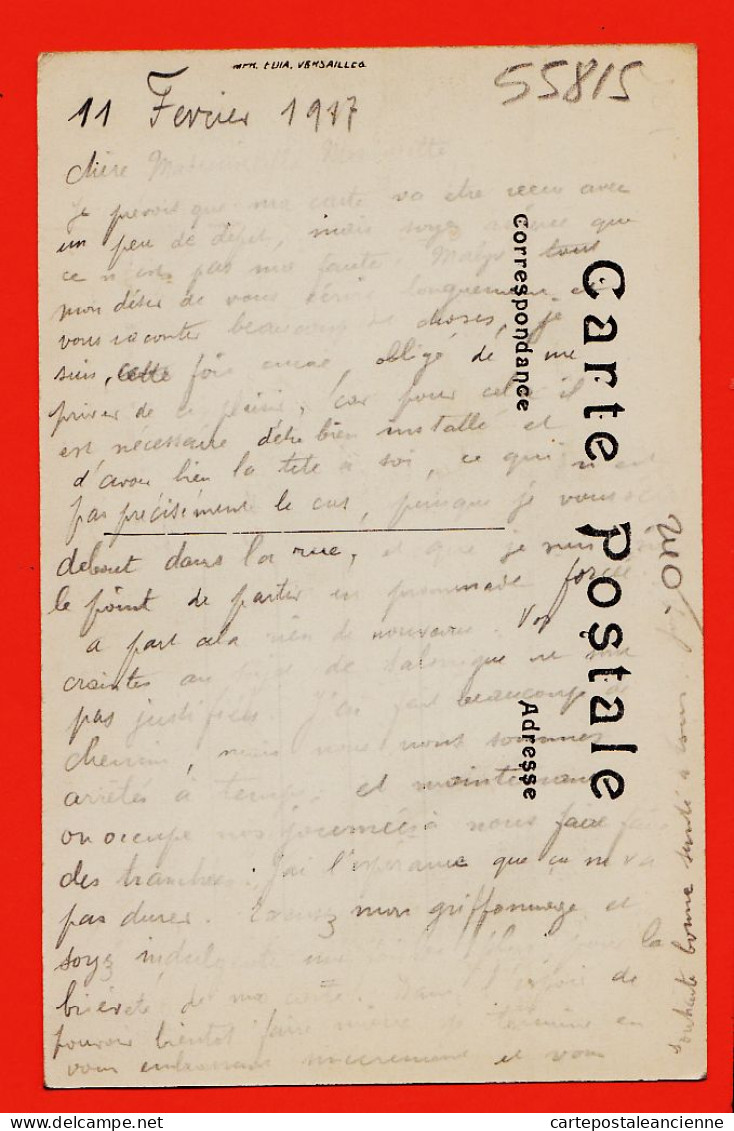 IMP. EDIA. VERSAILLES
55815
11 Fevrier 1917
chère
Je prevois que ma carte va être recue avec
un peu de dépit, mais soyez que
ce n'est pas ma faute. Malgré tous
mon désir de vous écrire longuement et
vous raconter beaucoup de choses, je
suis, cette fois encore, obligé de me
priver de ce plaisir, car pour cela il
est nécessaire d'être bien installé et
d'avoir bien la tete à soi, ce qui n'est
pas précisément le cas, puisque je vous
debout dans la rue, et que je suis
le point de partir en promenade forcée
a part cela rien de nouveau. Vos
craintes au sujet de Salonique ne sont
pas justifiées. J'ai fait beaucoup de
chemin, mais nous nous sommes
arrêtés à temps. et maintenant
on occupe nos journées à nous faire faire
des tranchées. J'ai l'espérance que ça ne va
pas durer. Excusez mon griffonnage et
soyez indulgente pour la
brièveté de ma carte. Dans l'espoir de
pouvoir bientot faire mieux je termine en
vous embrassant sincerement et vous
souhaite bonne santé à tous.
Carte Postale
Correspondance
Adresse
delcampe.net
cartepostaleancienne